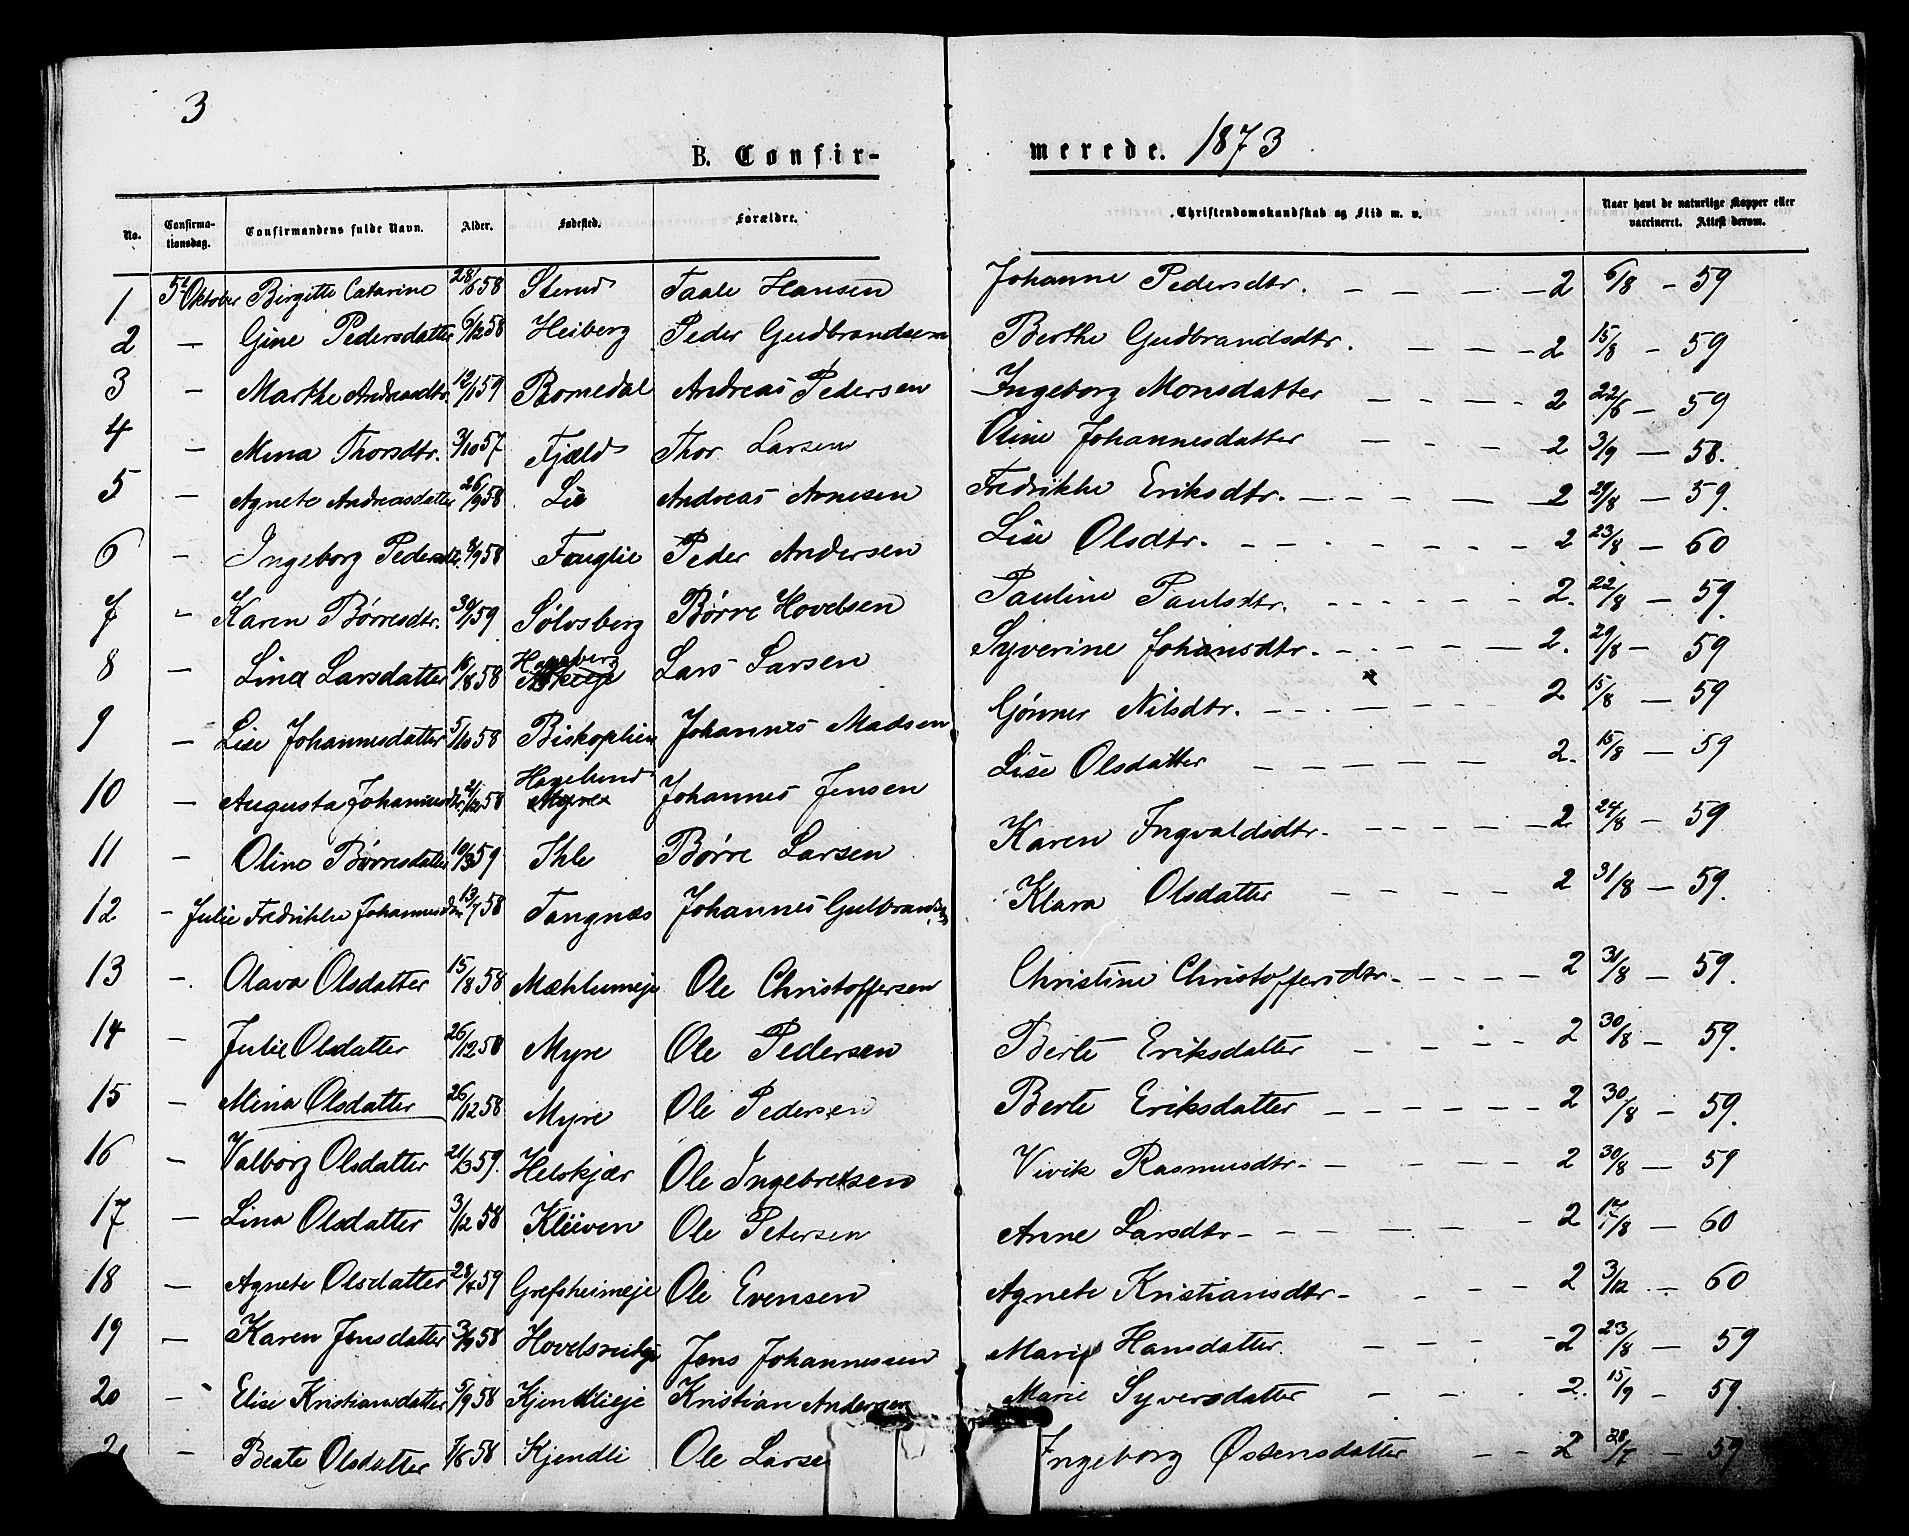 3
B. Confirmerede. 1873
No. Confirmationsdag. Confirmandens fulde Navn. Alder. Fødested. Forældre. Christendomskundskab og Flid m. v. Naar havt de naturlige Kopper eller vaccineret. Attest derom.
1 5te Oktober Birgitte Catarine 28/6 58 Sterud Taale Hansen Johanne Pedersdtr. - - - - 2 6/8 - 59
2 - Gine Pedersdatter 6/12 58 Heiberg Peder Gudbrandsen Berthe Gudbrandsdtr. - - - 2 15/8 - 59
3 - Marthe Andreasdtr. 12/1 59 Romedal Andreas Pedersen Ingeborg Monsdatter - - - - 2 22/6 - 59
4 - Mina Thorsdtr. 3/10 57 Fjæld Thor Larsen Oline Johannesdatter - - - 2 3/9 - 58.
5 - Agnete Andreasdatter 26/9 58 Lie Andreas Arnesen Fredrikke Eriksdtr. - - - - - 2 29/8 - 59.
6 - Ingeborg Pedersdtr. 8/9 58 Fanglie Peder Andersen Lise Olsdtr. - - - - - - 2 23/8 - 60
7 - Karen Børresdtr. 30/1 59 Sølvsberg Børre Hovelsen Pauline Paulsdtr. - - - - - 2. 22/8 - 59.
8 - Lina Larsdatter 16/8 58 Hageberg Lars Larsen Syverine Johansdtr. - - - - - 2. 29/8 - 59
9 - Lise Johannesdatter 5/10 58 Biskoplien Johannes Madsen Gønner Nilsdtr. - - - - - - 2 15/8 - 59
10 - Augusta Johannesdtr. 21/12 58 Hagelund Johannes Jensen Lise Olsdatter - - - - - 2. 15/8 - 59
11 - Oline Børresdatter 10/3 59 Ihle Børre Larsen Karen Ingvaldsdtr. - - - - - 2 24/8 - 59
12 - Julie Fredrikke Johannesdtr. 13/7 58 Tangnæs Johannes Gulbrandsen Klara Olsdatter - - - - 2 31/8 - 59.
13 - Olava Olsdatter 15/8 58 Mæhlumeje Ole Christoffersen Christine Christoffersdtr. - - - - 2 31/8 - 59.
14 - Julie Olsdatter 26/12 58 Myre Ole Pedersen Berte Eriksdatter - - - - 2 30/8 - 59.
15 - Mina Olsdatter 26/12 58 Myre Ole Pedersen Berte Eriksdatter - - - - - - 2 30/8 - 59.
16 - Valborg Olsdatter 21/3 59. Helskjær Ole Ingebretsen Vivik Rasmusdtr. - - - - - 2 30/8 - 59
17 - Lina Olsdatter 3/12 58 Kløven Ole Petersen Anne Larsdtr - - - - - - 2 17/8 - 60
18 - Agnete Olsdatter 28/4 59 Grefsheimeje Ole Evensen Agnete Kristiansdtr - - - - 2 3/12 - 60
19 - Karen Jensdatter 3/9 58 Jens Johannessen Marie Hansdatter. - - - - 2 23/8 - 59
20 - Elise Kristiansdatter 5/9 58 Kjendlieje Kristian Andersen Marie Syversdatter - - - 2. 15/9 - 59.
- Beate Olsdatter 58 Kjendli Ole Larse Ingeborg Østensdatter - - 2 28/7 - 59